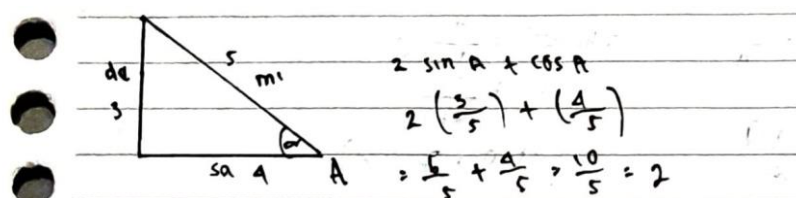 de
3
5
mi
α
sa 4
A
2 sin A + cos A
2 (3/5) + (4/5)
= 6/5 + 4/5 = 10/5 = 2